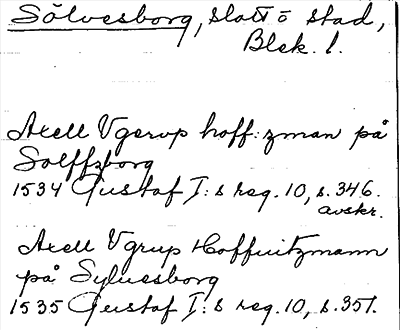 Sölvesborg, slott o stad,
Blek. l.
Axell Vgerup hoff:zman på
Solffzborg
1534 Gustaf I:s reg. 10, s. 346.
avskr.
Axell Vgrup Hoffuitzmann
på Syluesborg
1535 Gustaf I:s reg. 10, s. 351.